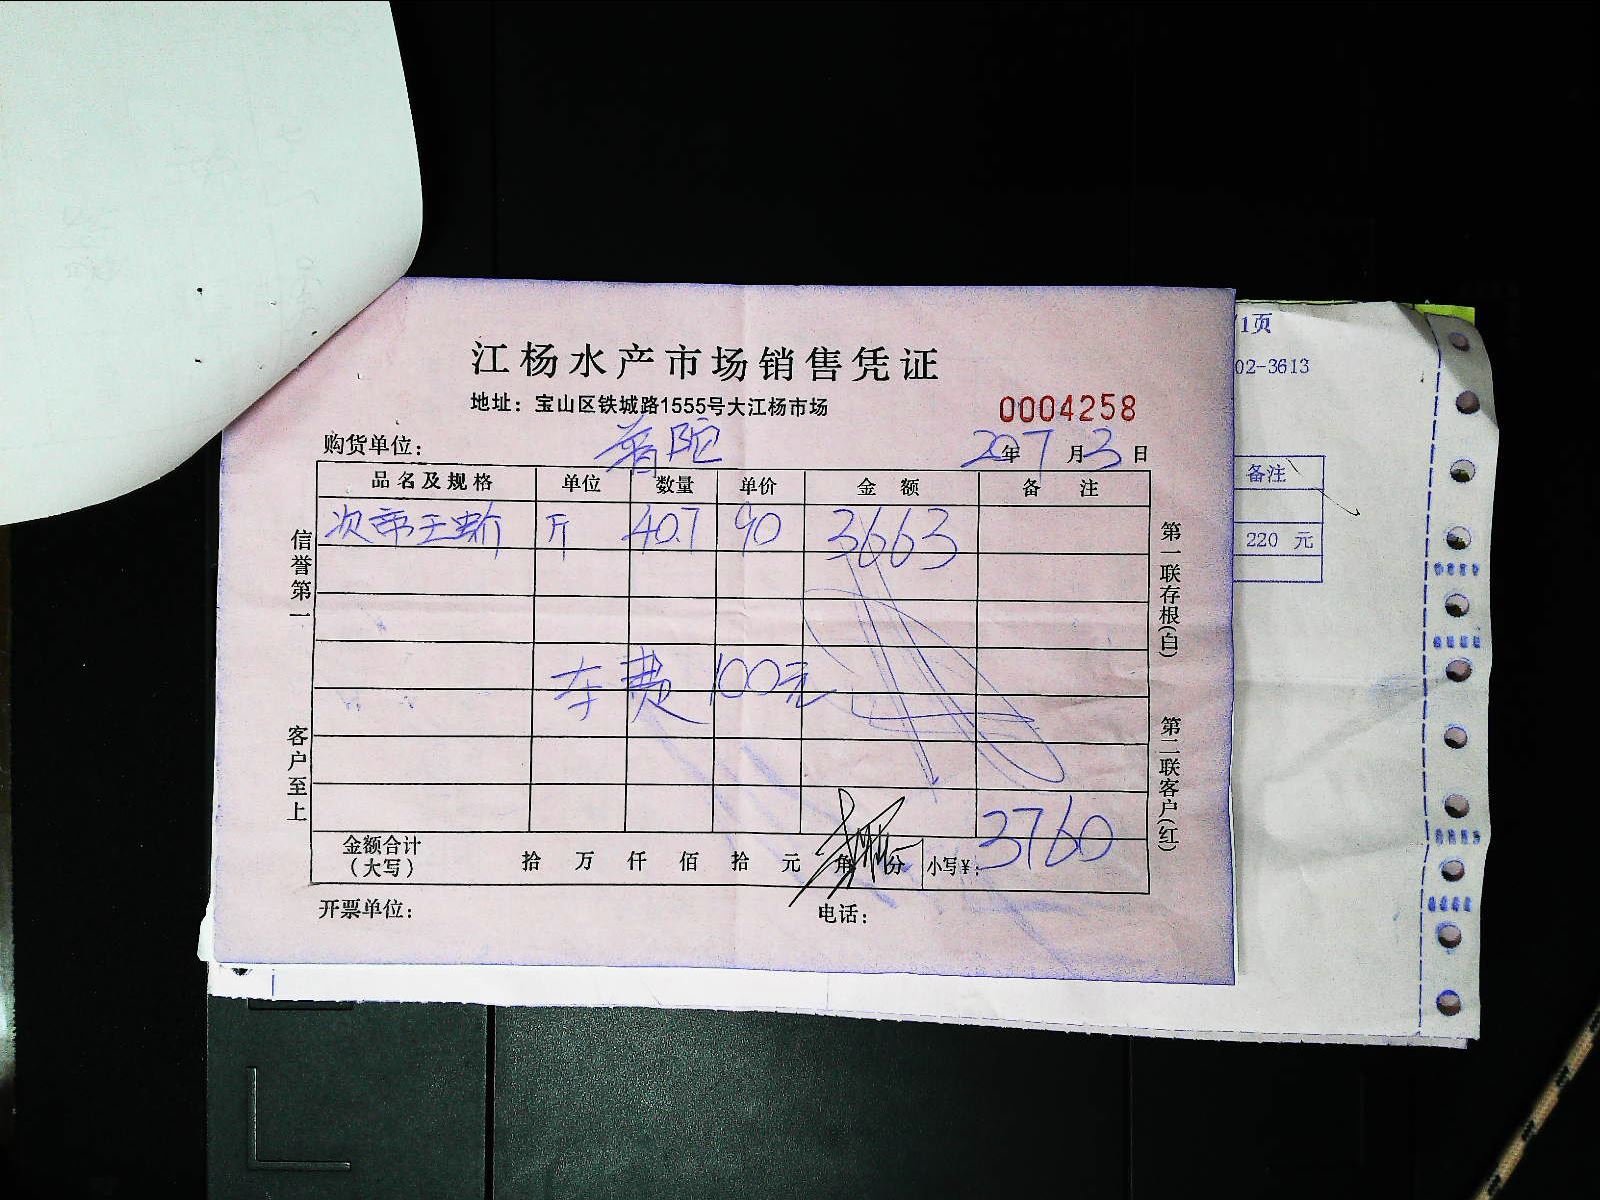 江杨水产市场销售凭证
地址：宝山区铁城路1555号大江杨市场
0004258
购货单位： 普陀
20年7月3日
品名及规格 单位 数量 单价 金额 备注
次帝王 斤 40.7 90 3663
车费 100元
金额合计（大写） 拾 万 仟 佰 拾 元 角 分 小写¥：3760
开票单位： 电话：
信誉第一
客户至上
第一联存根（白）
第二联客户（红）
/1页
02-3613
备注
220 元